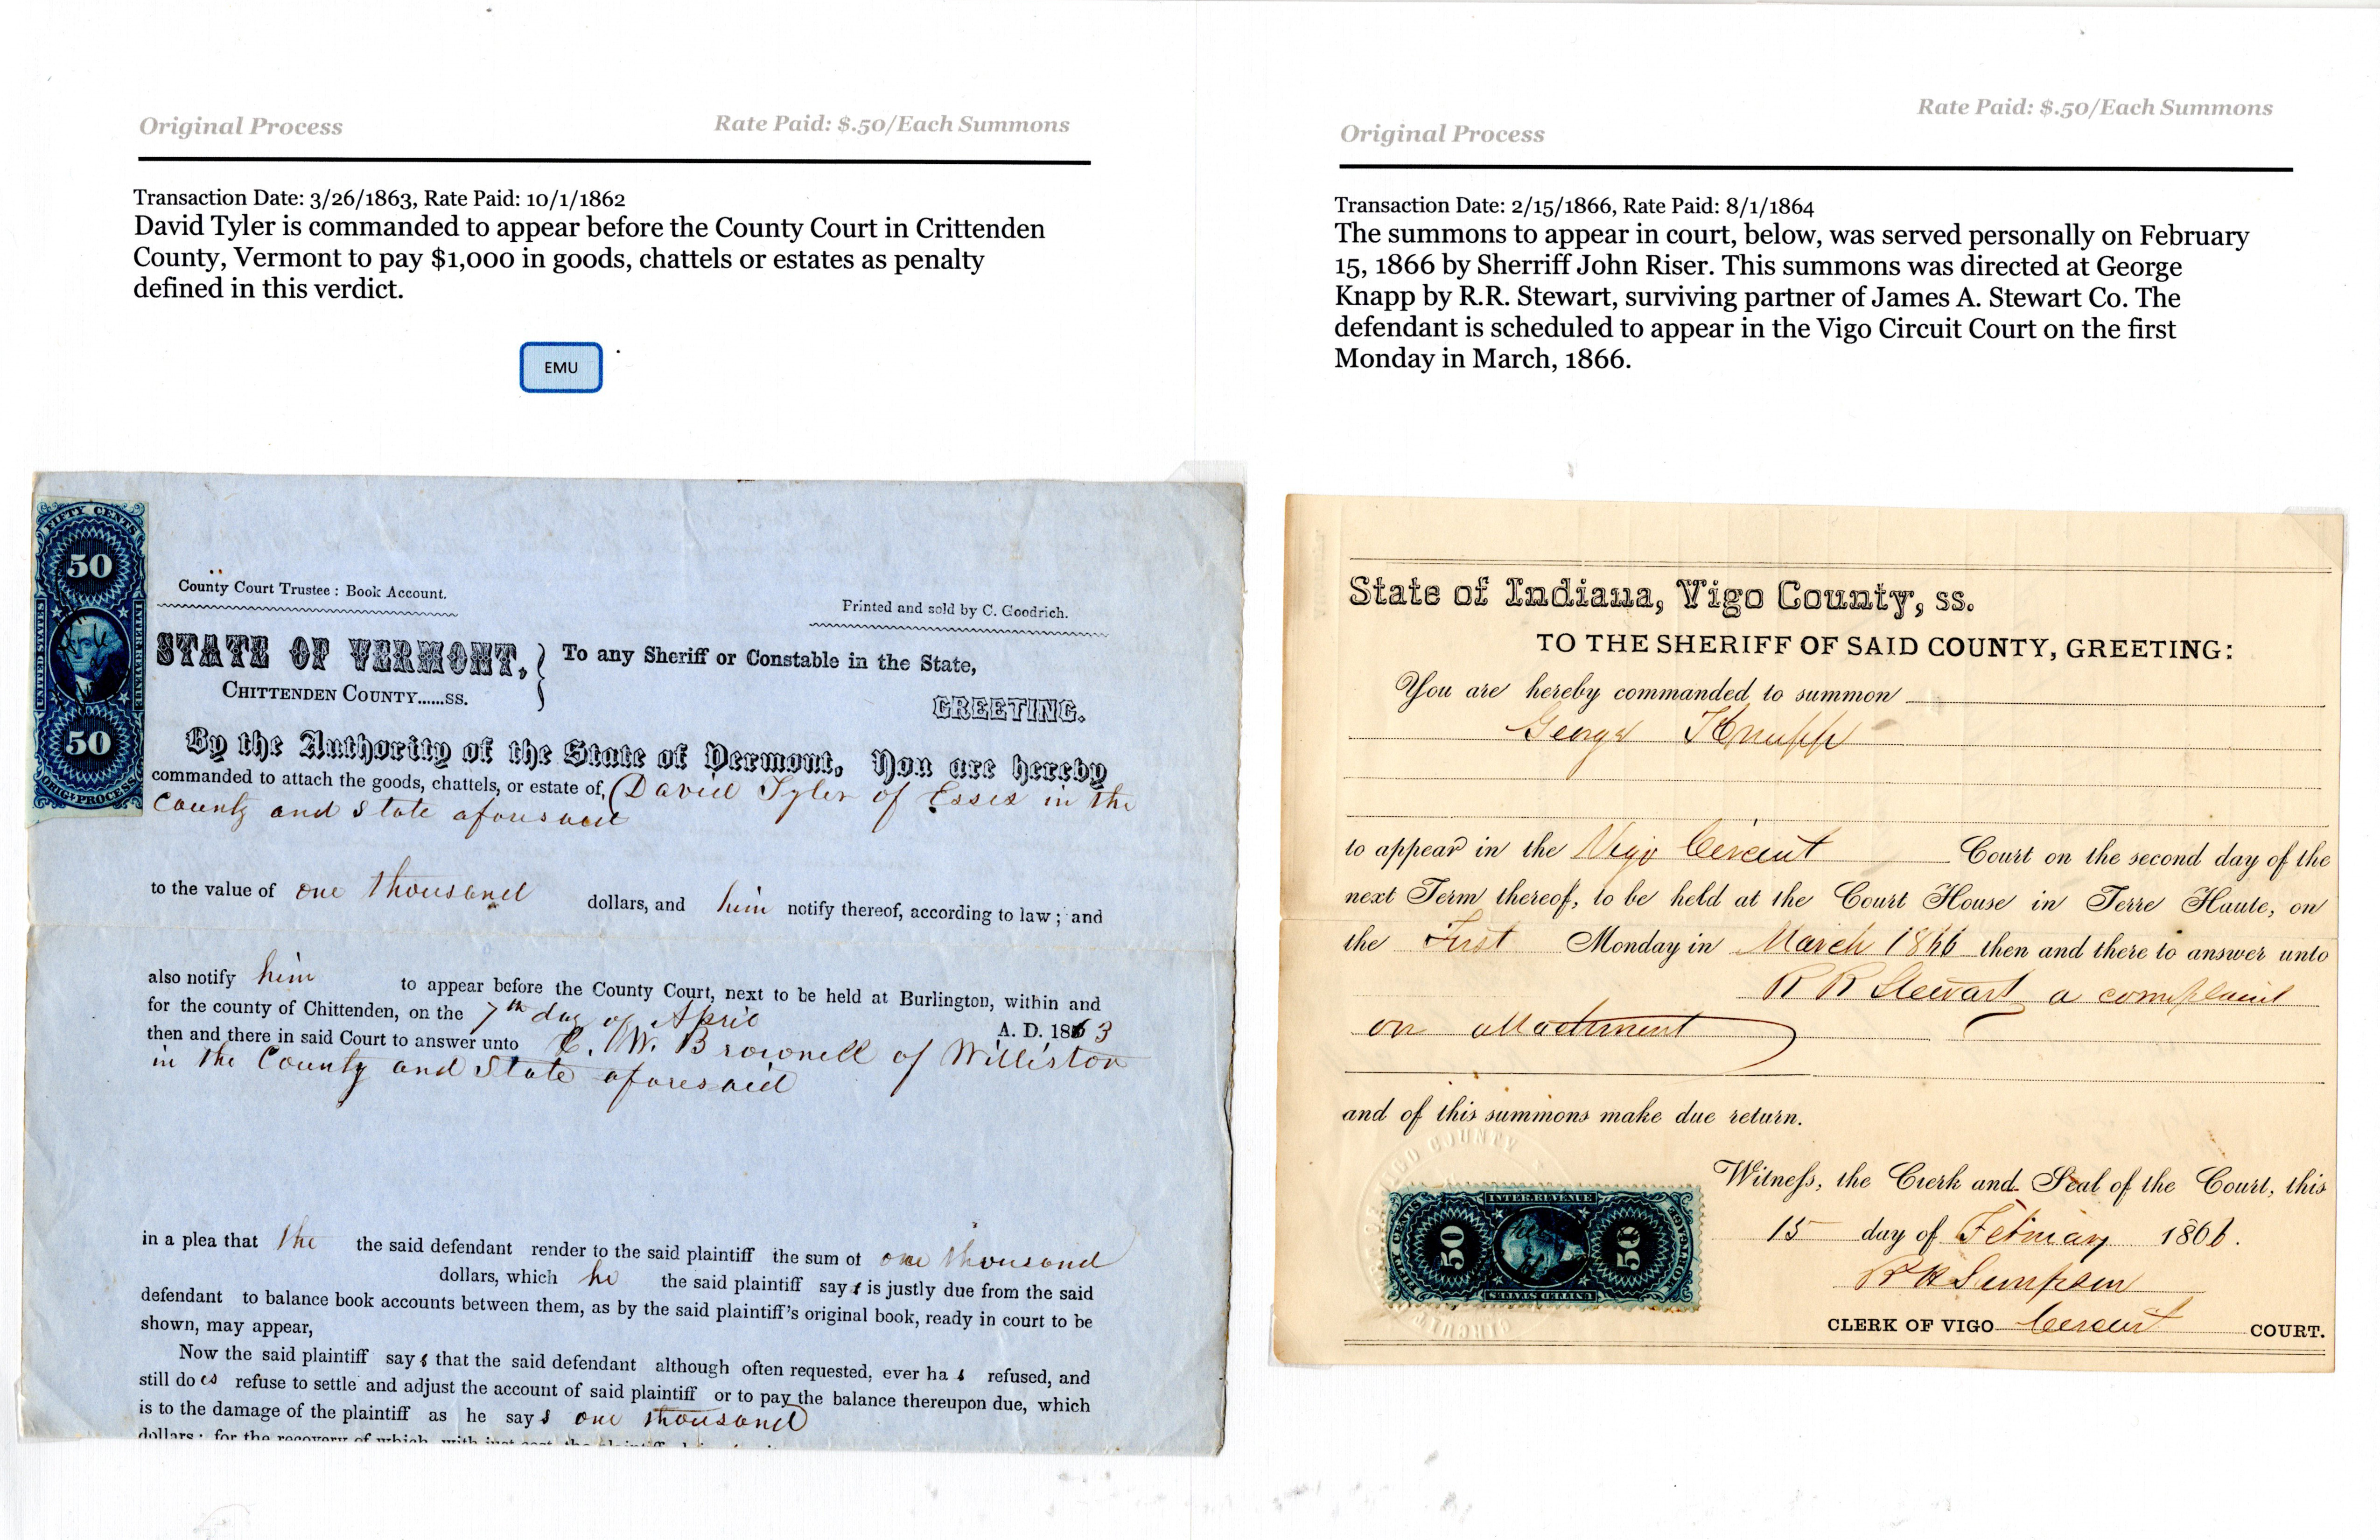 Original Process
Rate Paid: $.50/Each Summons
Transaction Date: 3/26/1863, Rate Paid: 10/1/1862
David Tyler is commanded to appear before the County Court in Crittenden
County, Vermont to pay $1,000 in goods, chattels or estates as penalty
defined in this verdict.
EMU
FIFTY CENTS
50
UNITED STATES
INTER. REVENUE
50
ORIG. PROCESS
County Court Trustee : Book Account.
Printed and sold by C. Goodrich.
STATE OF VERMONT,
CHITTENDEN COUNTY......SS.
To any Sheriff or Constable in the State,
GREETING.
By the Authority of the State of Vermont, You are hereby
commanded to attach the goods, chattels, or estate of, David Tyler of Essex in the
County and State aforesaid
to the value of one thousand dollars, and him notify thereof, according to law ; and
also notify him to appear before the County Court, next to be held at Burlington, within and
for the county of Chittenden, on the 7th day of April A. D. 1863
then and there in said Court to answer unto C. W. Brownell of Williston
in the County and State aforesaid
in a plea that the the said defendant render to the said plaintiff the sum of one thousand
dollars, which he the said plaintiff says is justly due from the said
defendant to balance book accounts between them, as by the said plaintiff's original book, ready in court to be
shown, may appear,
Now the said plaintiff says that the said defendant although often requested, ever has refused, and
still does refuse to settle and adjust the account of said plaintiff or to pay the balance thereupon due, which
is to the damage of the plaintiff as he says one thousand
dollars ; for the recovery of which, with just cost, the plaintiff
Rate Paid: $.50/Each Summons
Original Process
Transaction Date: 2/15/1866, Rate Paid: 8/1/1864
The summons to appear in court, below, was served personally on February
15, 1866 by Sherriff John Riser. This summons was directed at George
Knapp by R.R. Stewart, surviving partner of James A. Stewart Co. The
defendant is scheduled to appear in the Vigo Circuit Court on the first
Monday in March, 1866.
State of Indiana, Vigo County, ss.
TO THE SHERIFF OF SAID COUNTY, GREETING:
You are hereby commanded to summon
George Knupp
to appear in the Vigo Circuit Court on the second day of the
next Term thereof, to be held at the Court House in Terre Haute, on
the First Monday in March 1866 then and there to answer unto
R R Stewart a complaint
on attachment
and of this summons make due return.
VIGO COUNTY
CIRCUIT
INTER. REVENUE
FIFTY CENTS
50
50
UNITED STATES
Witness, the Clerk and Seal of the Court, this
15 day of February 1866.
CLERK OF VIGO Circuit COURT.